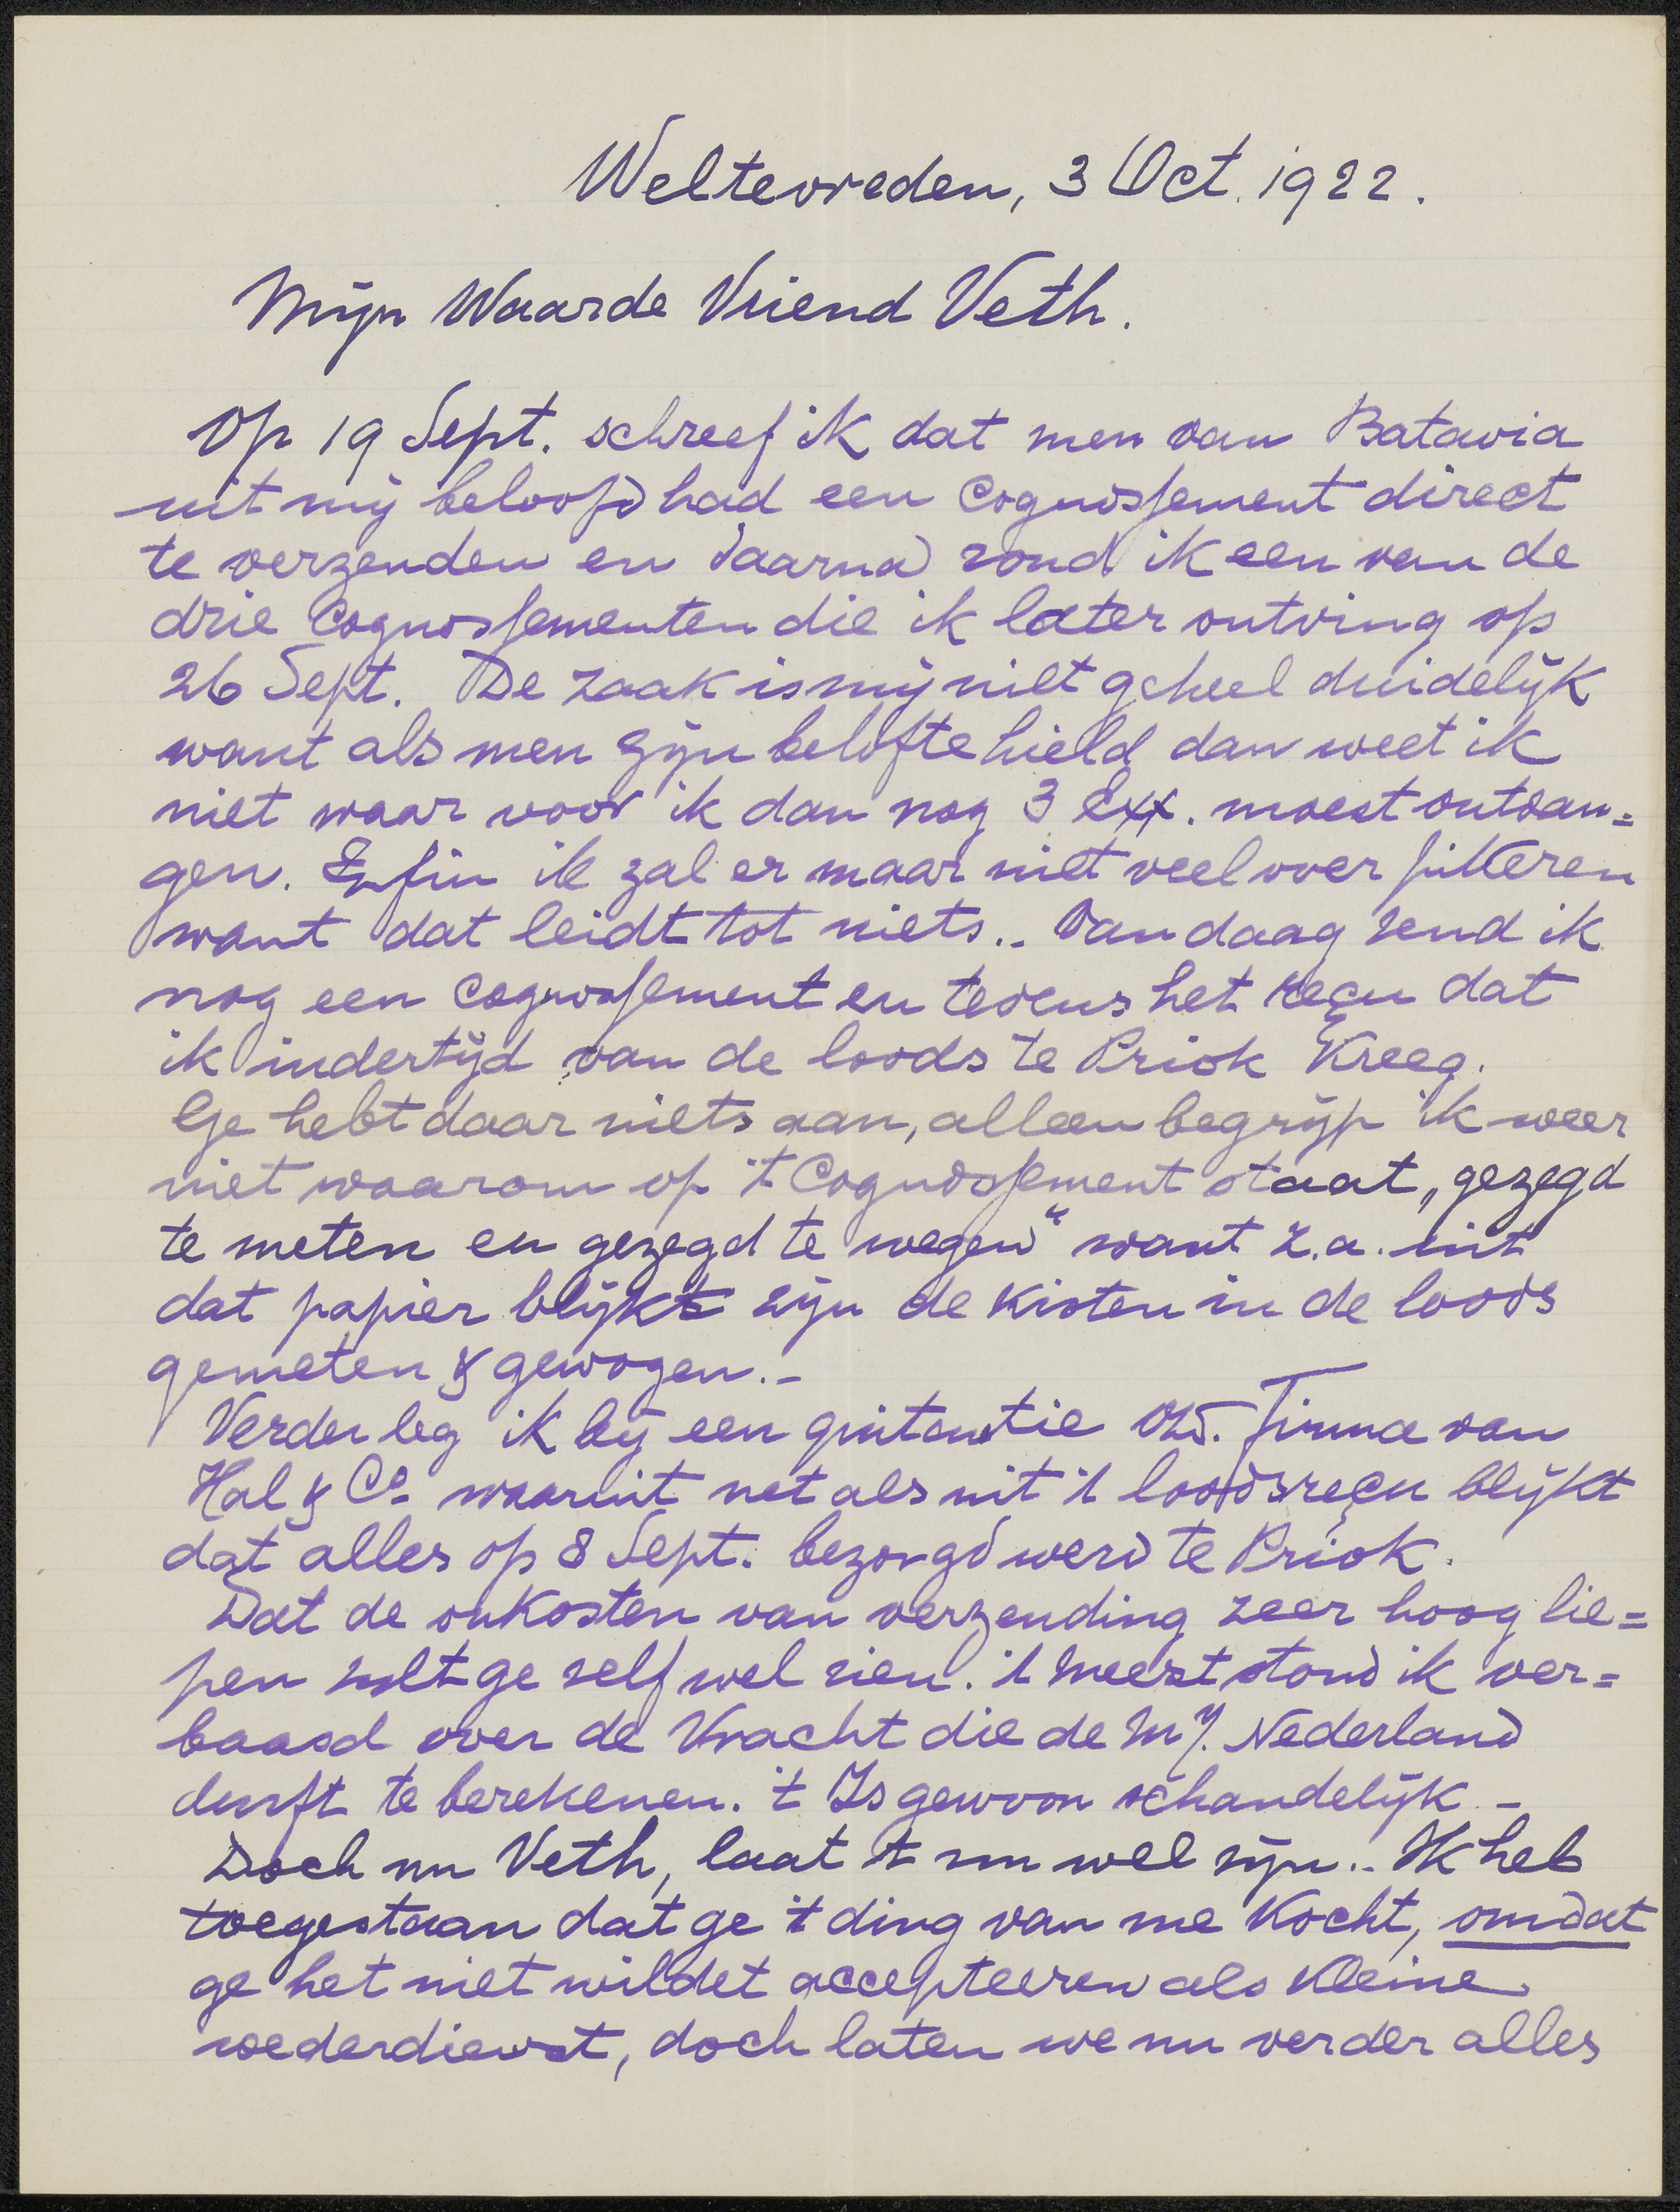 Weltevreden, 3 Oct. 1922.
Mijn Waarde Vriend Veth.
Op 19 Sept. schreef ik dat men van Batavia
uit mij beloofd had een Cognossement direct
te verzenden en daarna zond ik een van de
drie Cognossementen die ik later ontving op
26 Sept. De zaak is mij niet geheel duidelijk
want als men zijn belofte hield dan weet ik
niet waar voor ik dan nog 3 Exx. moest ontvan=
gen. Enfin ik zal er maar niet veel over fitteren
want dat leidt tot niets.. Vandaag zend ik
nog een Cognossement en tevens het reçu dat
ik indertijd van de loods te Priok kreeg.
Ge hebt daar niets aan, alleen begrijp ik weer
niet waarom op 't Cognossement staat „gezegd
te meten en gezegd te wegen" want z.a. uit
dat papier blijkt zijn de kisten in de loods
gemeten & gewogen.-
Verder leg ik bij een quitantie v/d. Firma van
Hal & Co. waaruit net als uit 't loodsreçu blijkt
dat alles op 8 Sept. bezorgd werd te Priok.
Dat de onkosten van verzending zeer hoog lie=
pen zult ge zelf wel zien. 't Meest stond ik ver=
baasd over de Vracht die de Mij. Nederland
durft te berekenen. 't Is gewoon schandelijk.-
Doch nu Veth, laat 't nu wel zijn.. Ik heb
toegestaan dat ge 't ding van me kocht, omdat
ge het niet wildet accepteeren als kleine
wederdienst, doch laten we nu verder alles